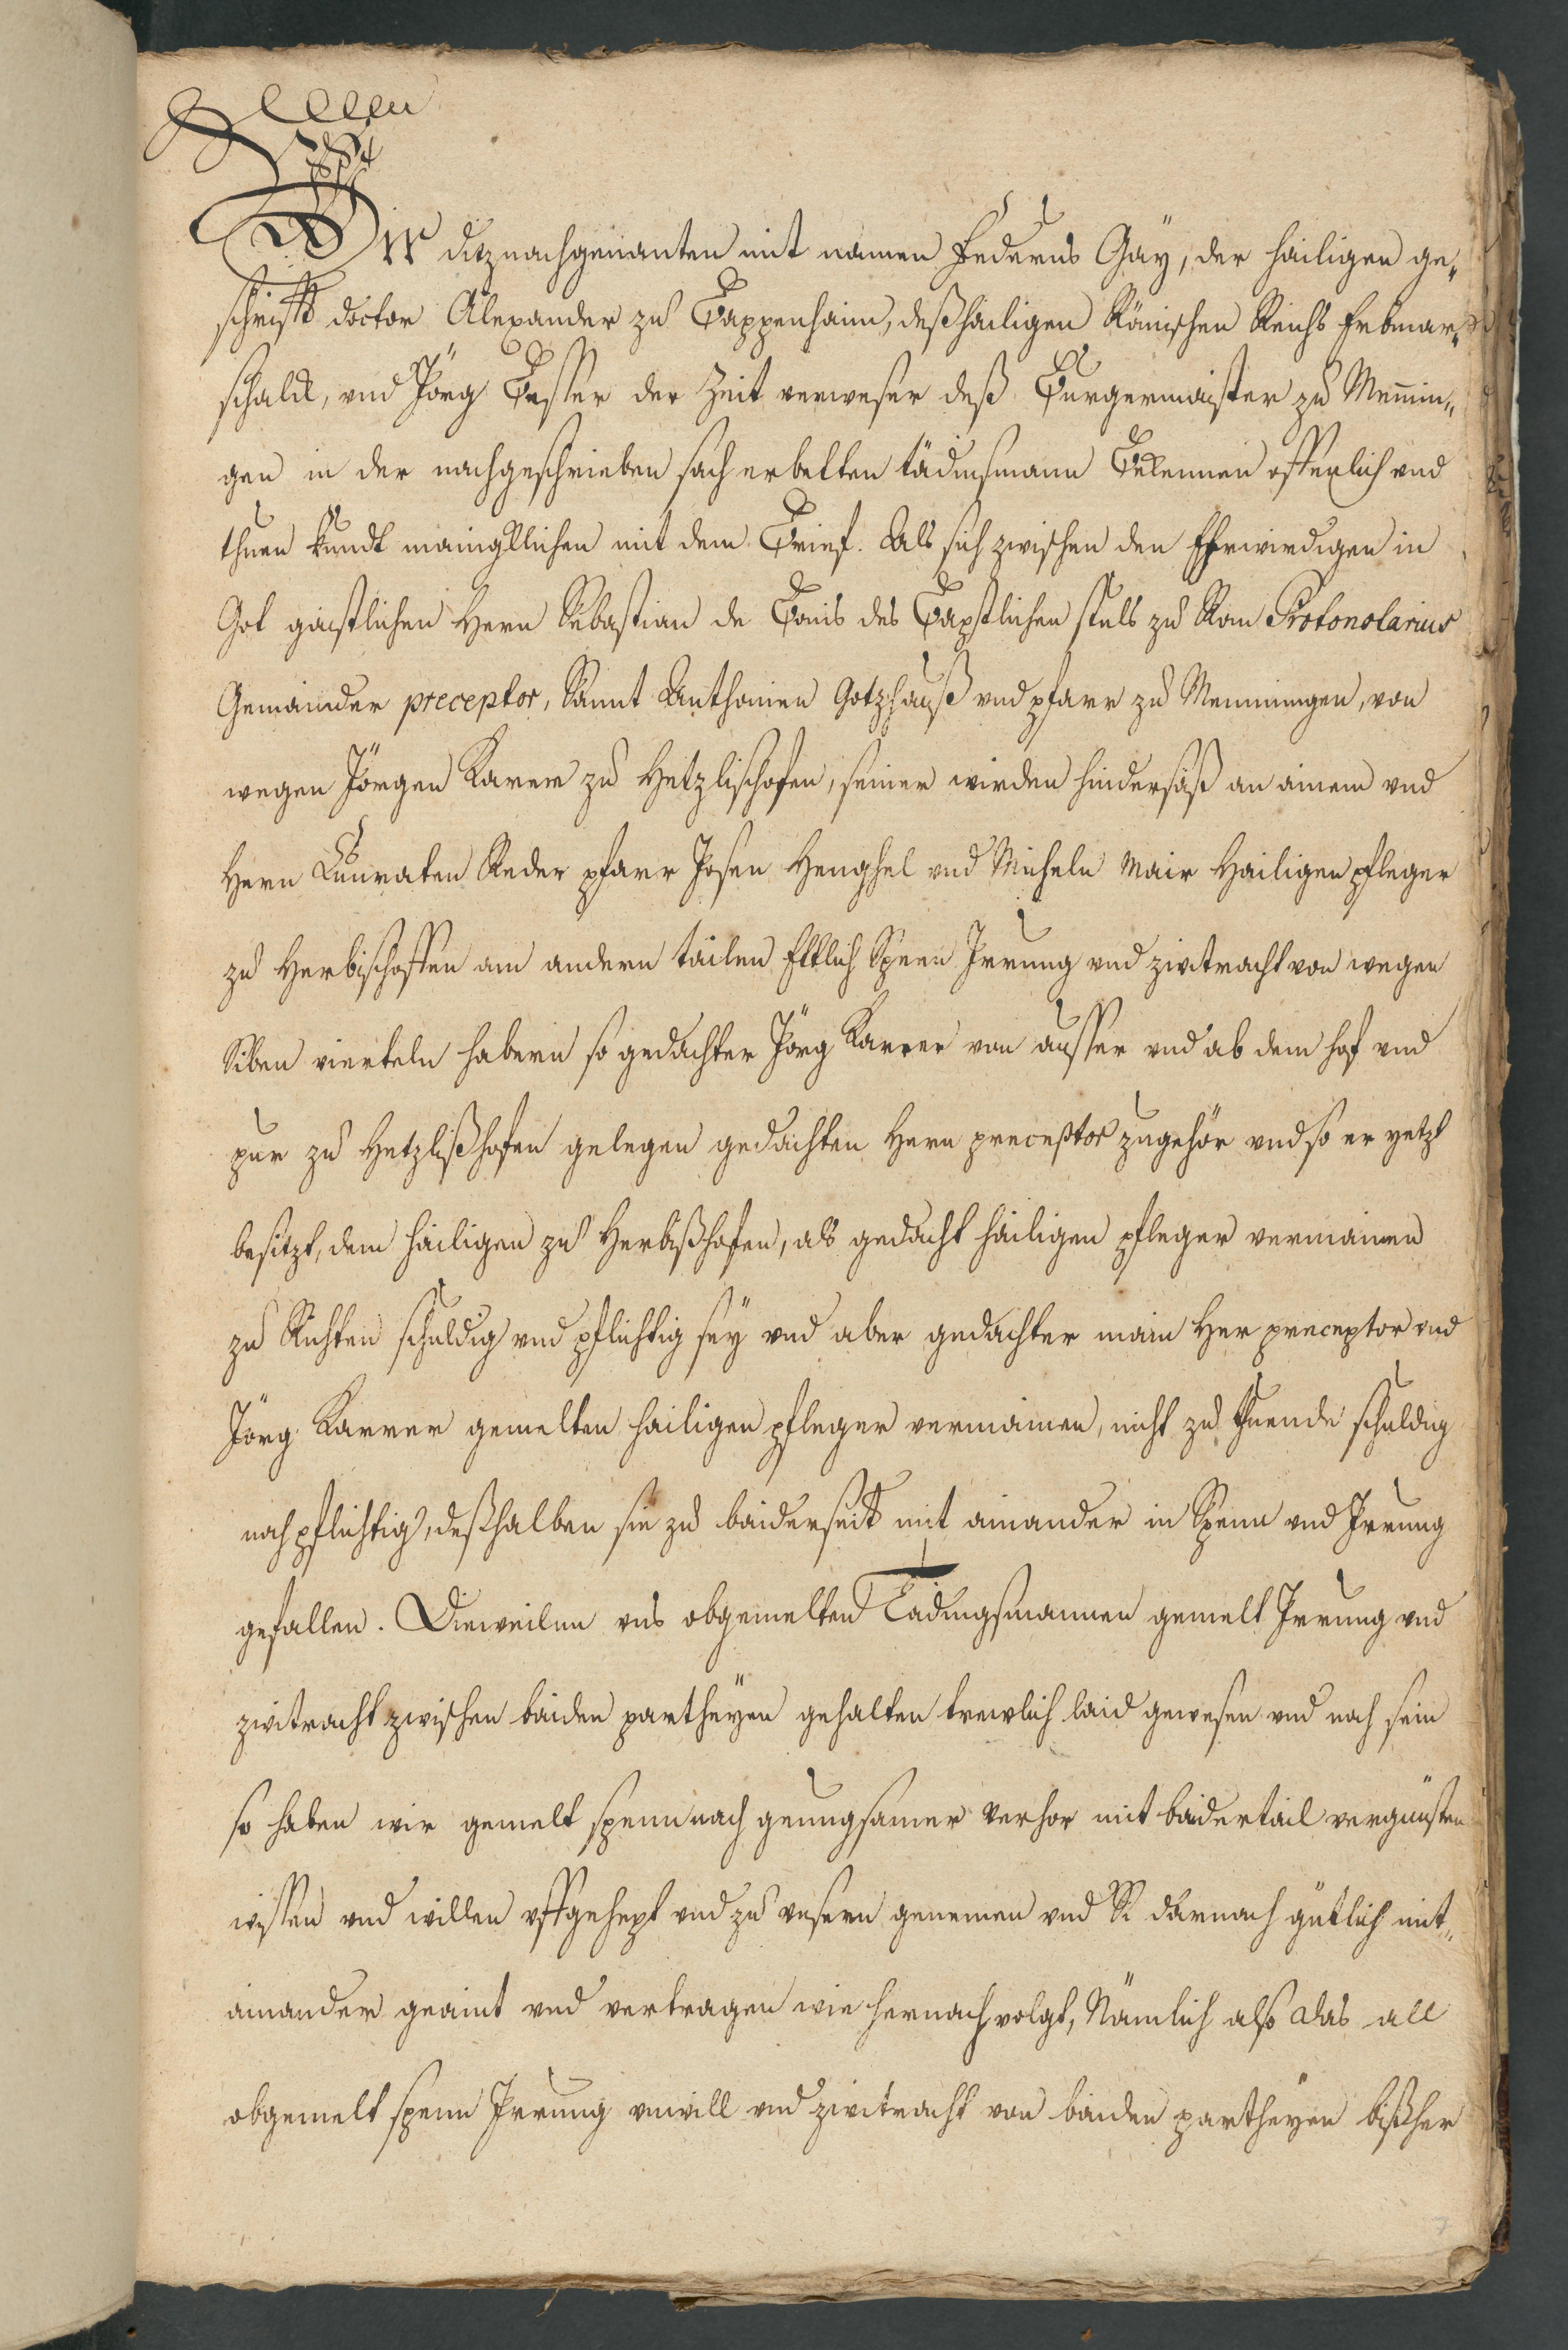 Wir diznachgenanten mit namen Federus Gäy, der hailigen ge„
schrifft doctor Alexander zu Bappenhaim, deß hailigen Römischen Reichs Erbmar„
schalck, vnd Jörg Besser der Zeit verweser deß Burgermaister zu Memmin„
gen in der nachgeschrieben sach erbetten tädinsmann Bekennen offenlich vnd
thuen kundt maingklichen mit dem Brief. Als sich zwischen den Ehrwirdigen in
Got gaistlichen Hern Sebastian de Bonis des Bapstlichen stuls zu Rom Protonotarius
Gemainder preceptor, Sannt Anthonien Gotzhauß vnd pfarr zu Memmingen, von
wegen Jörgen Karrer zu Hetzlischofen, seiner wirden hindersäß an ainem vnd
Hern Cunraten Reder pfarr Josen Henghel vnd Micheln Mair Hailigen pfleger
zu Herbischoffen am andern tailen Ettlich Spenn Irrung vnd zwitracht von wegen
Siben vierteln habern so gedachter Jörg Karrer von ausser vnd ab dem hof vnd
pur zu Hetzlißhofen gelegen gedachten Hern preceptor zugehör vnd so er yetzt
besitzt, dem hailigen zu Herbißhofen, als gedacht hailigen pfleger vermainen
zu Richten schuldig vnd pflichtig sey vnd aber gedachter main Her preceptor vnd
Jörg Karrer gemelten hailigen pfleger vermainen, nicht zu thuende schuldig
noch pflichtig, deßhalben sie zu baiderseit mit ainander in Spenn vnd Irrung
gefallen. Dieweilen vns obgemelten Tädingsmannen gemelt Irrung vnd
zwitracht zwischen baiden partheyen gehalten trewlich laid gewesen vnd noch sein
so haben wir gemelt spenn nach genungsamer verhor mit baidertail vergünsten
wissen vnd willen vffgehept vnd zu vnsern genemen vnd Si darnach gütlich mit„
ainander geaint vnd vertragen wie hernach volgt, Nämlich also das all
obgemelt spenn Irrung vnwill vnd zwitracht von baiden partheyen bißher